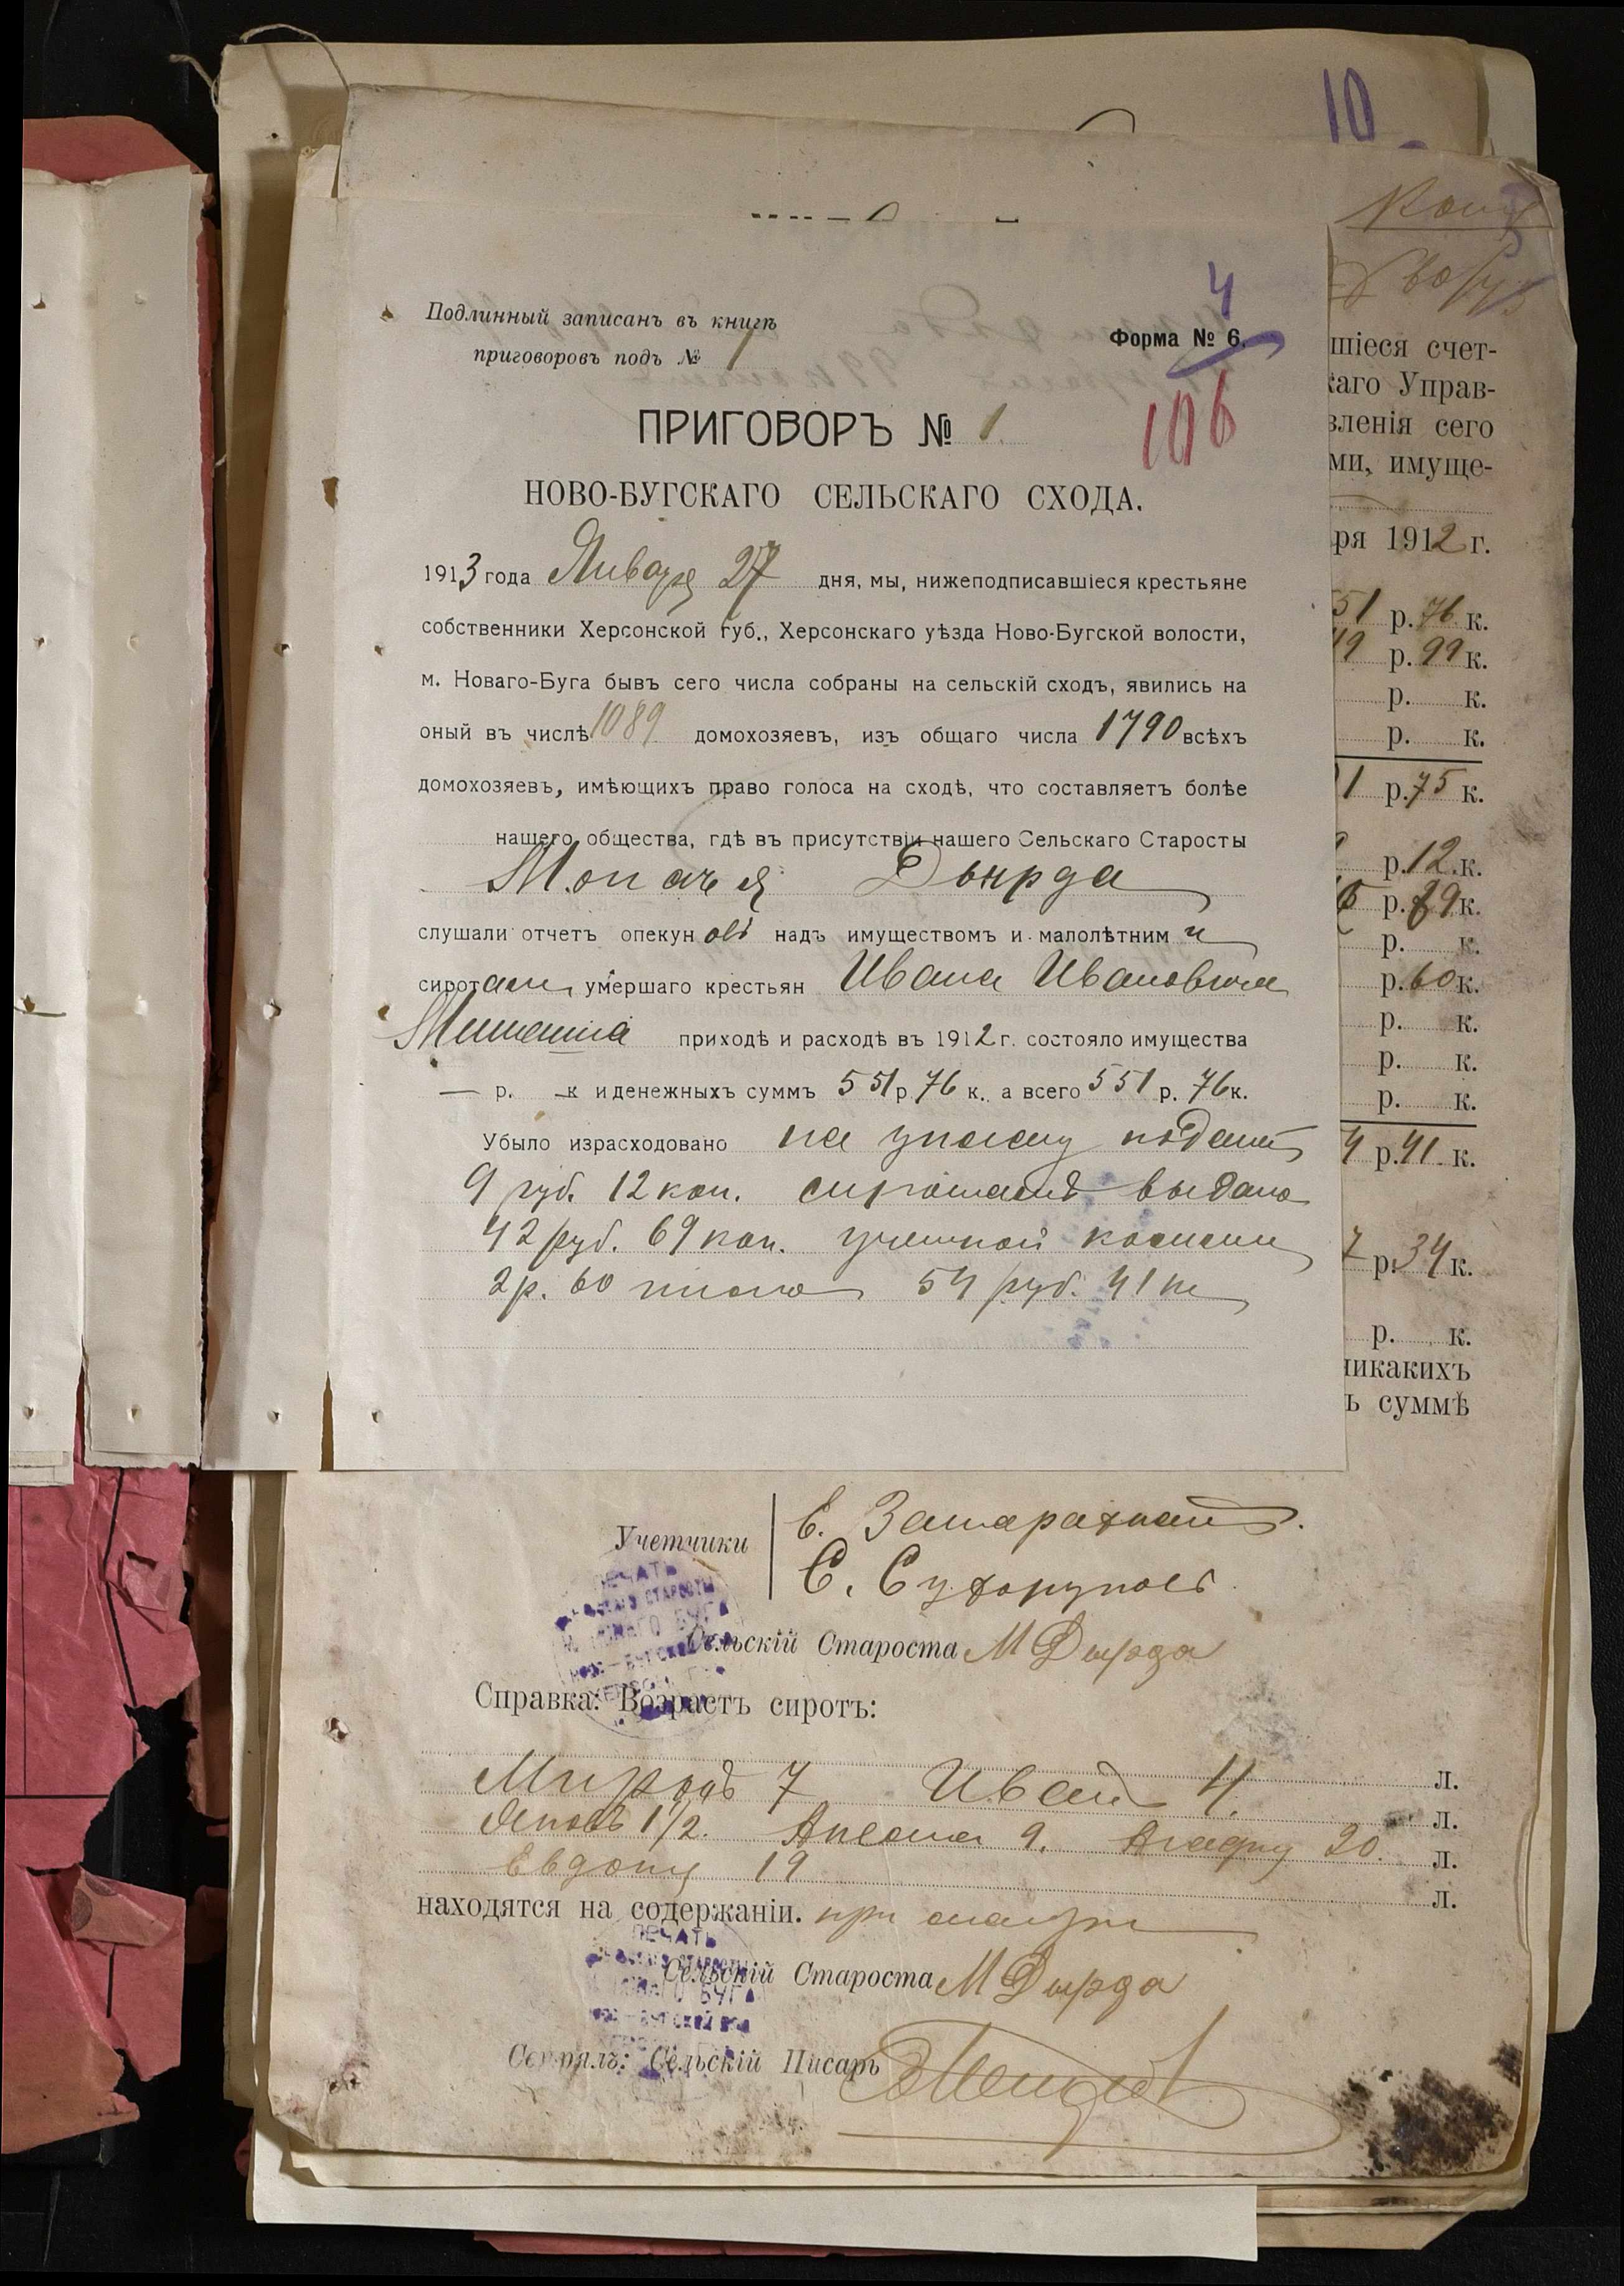 10
4
Подлинный записанъ въ книгѣ
приговоровъ подъ № 1
Форма № 6.
106
ПРИГОВОРЪ № 1.
НОВО-БУГСКАГО СЕЛЬСКАГО СХОДА.
1913 года Января 27 дня, мы, нижеподписавшіеся крестьяне
собственники Херсонской губ., Херсонскаго уѣзда Ново-Бугской волости,
м. Новаго-Буга бывъ сего числа собраны на сельскій сходъ, явились на
оный въ числѣ 1089 домохозяевъ, изъ общаго числа 1790 всѣхъ
домохозяевъ, имѣющихъ право голоса на сходѣ, что составляетъ болѣе
нашего общества, гдѣ въ присутствіи нашего Сельскаго Старосты
Дырда
слушали отчетъ опекуновъ надъ имуществомъ и малолѣтними
сиротами умершаго крестьян Ивана Ивановича
приходѣ и расходѣ въ 1912 г. состояло имущества
— р. — к и денежныхъ суммъ 551 р 76 к. а всего 551 р. 76 к.
Убыло израсходовано на уплату податей
9 руб. 12 коп. сиротамъ выдано
42 руб. 69 коп. учетной комисии
2 р. 60 итого 54 руб. 41 к
шіеся счет-
каго Управ-
вленія сего
ми, имуще-
ря 1912 г.
51 р. 76 к.
49 р. 99 к.
р. к.
р. к.
1 р. 75 к.
р. 12 к.
р. 69 к.
р. к.
р. 60 к.
р. к.
р. к.
р. к.
4 р. 41 к.
7 р. 34 к.
р. к.
никакихъ
ъ суммѣ
Учетчики
С. Сухоруковъ
Сельскій Староста М Дырда
Справка: Возрастъ сиротъ:
Миронъ 7 Иванъ 4. л.
Яковъ 1 1/2. 9. Агафія 20. л.
Евдокия 19 л.
л.
находятся на содержаніи. при матери
Сельскій Староста М Дырда
Свѣрялъ: Сельскій Писарь
ПЕЧАТЬ
ПЕЧАТЬ